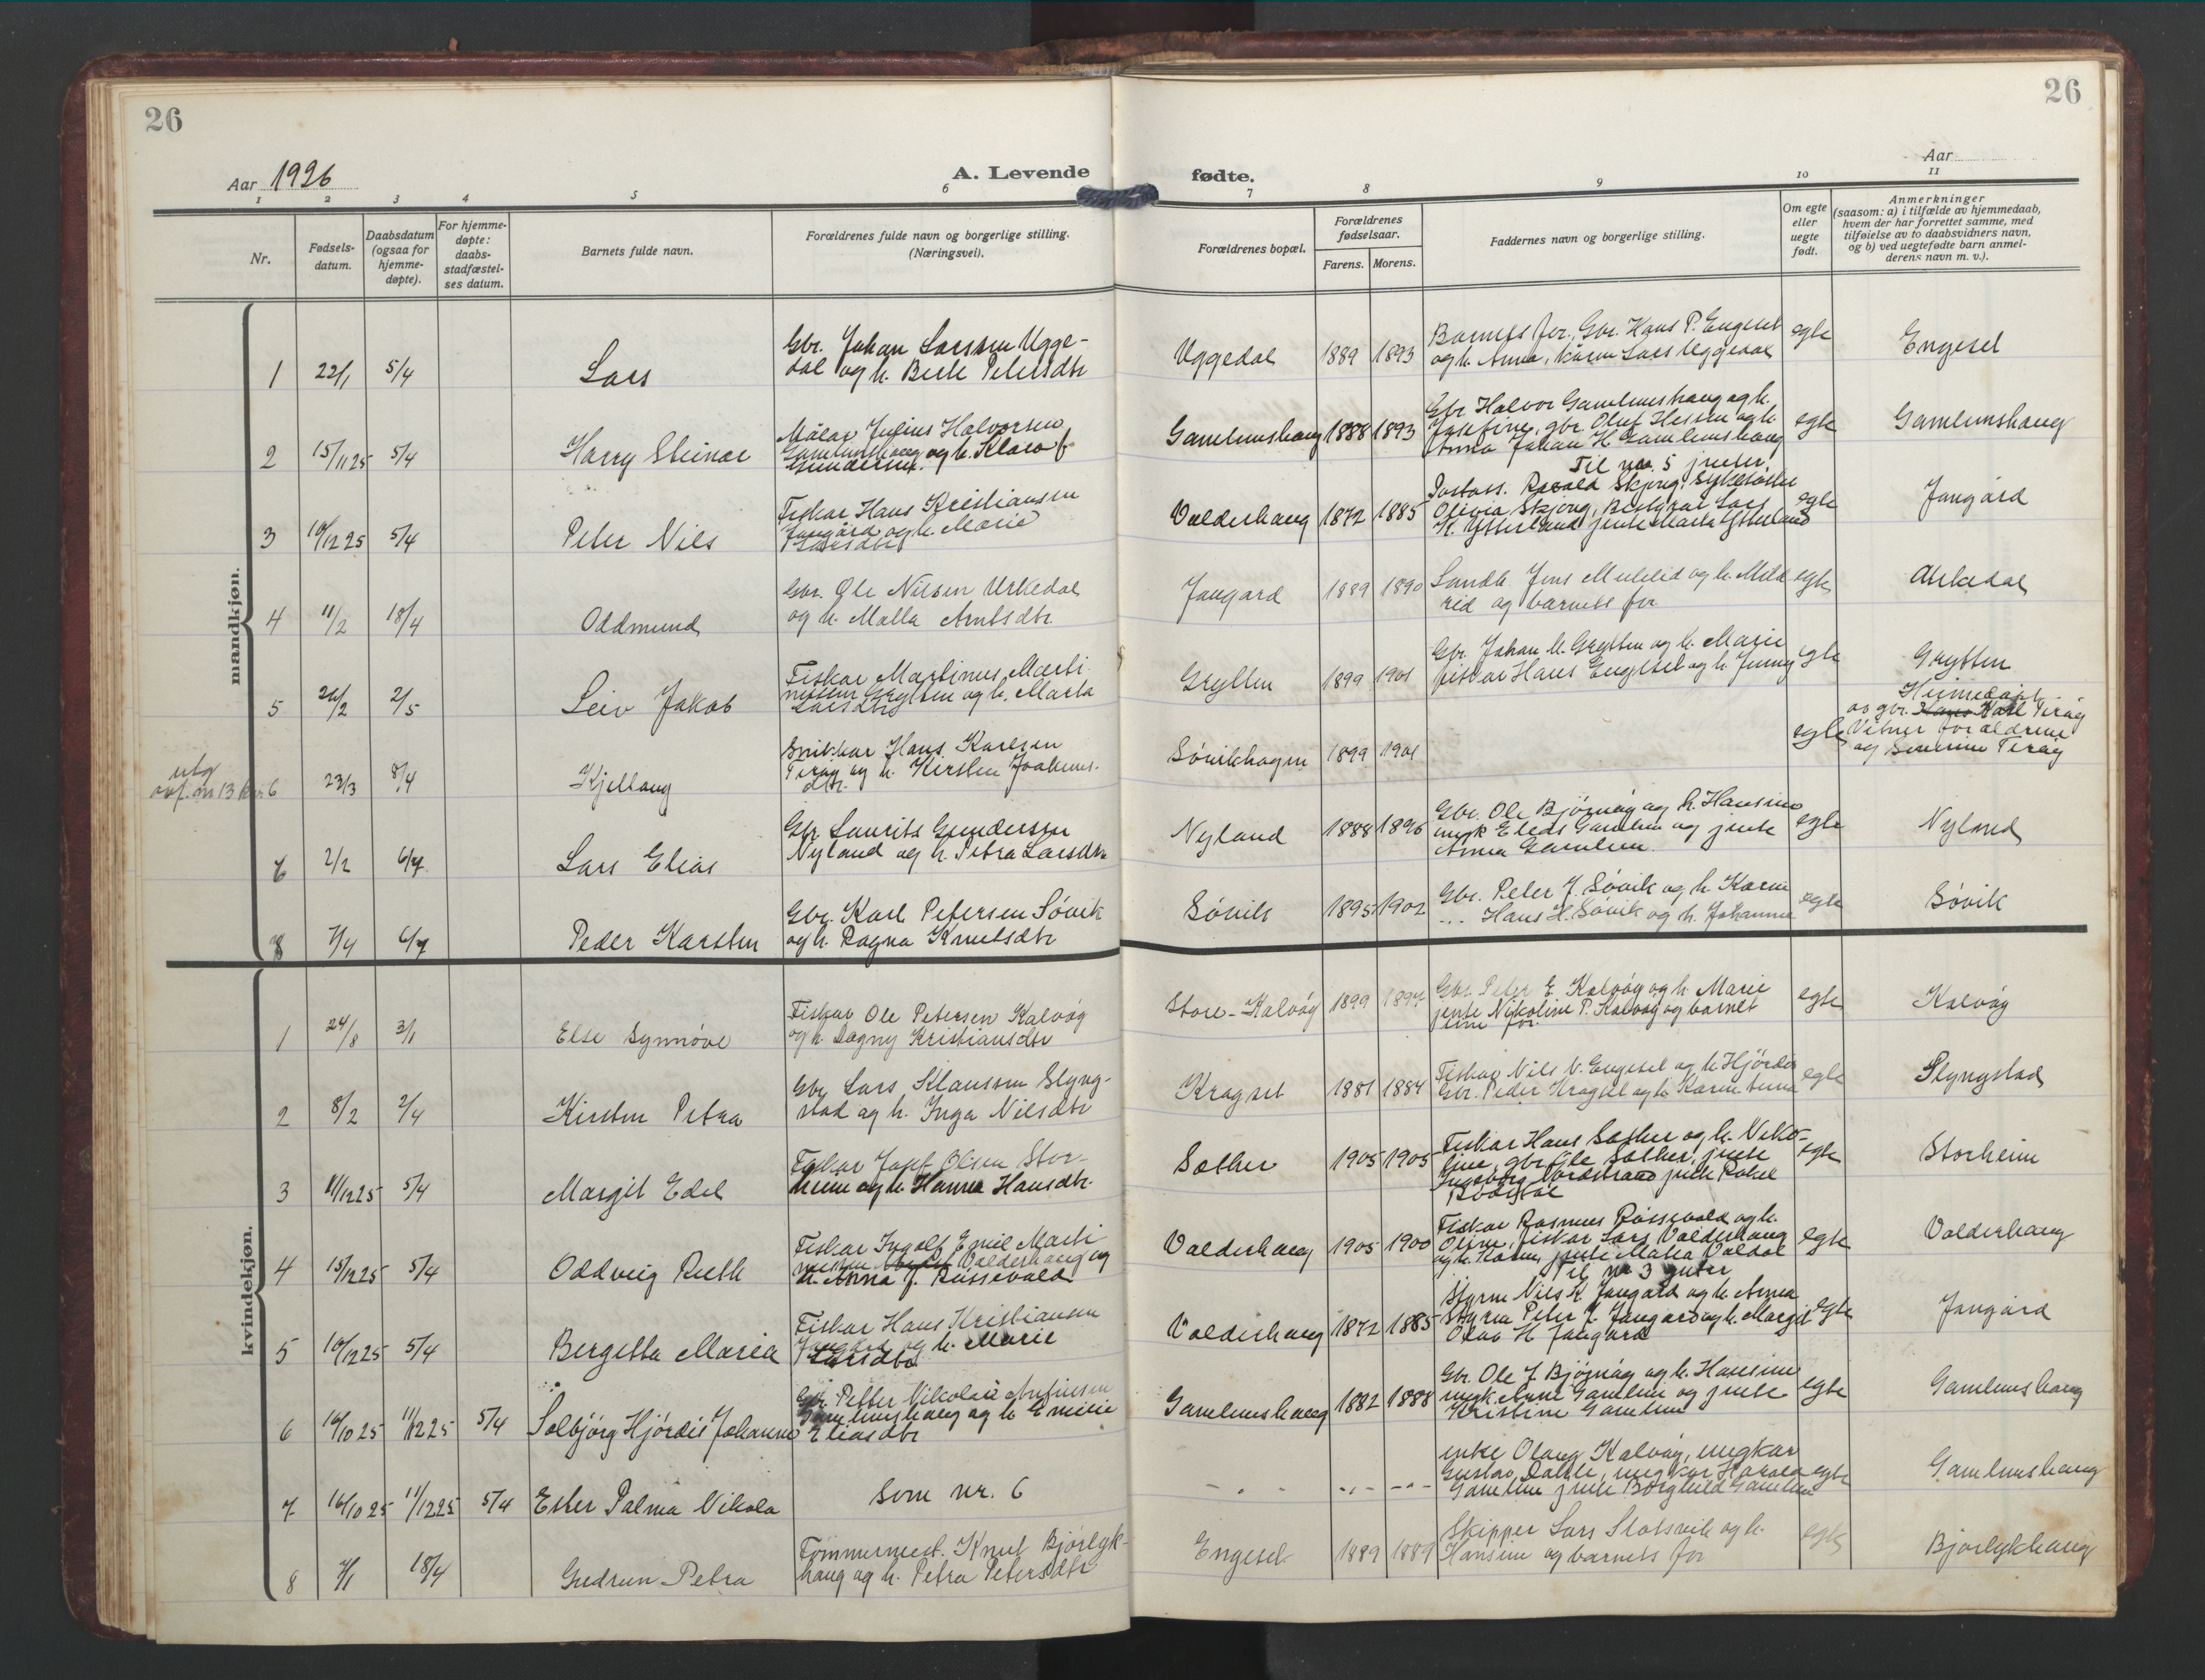 26
26
Aar 1926
A. Levende fødte.
Aar
1 2 3 4 5 6 7 8 9 10 11
Nr.
Fødsels-
datum.
Daabsdatum
(ogsaa for
hjemme-
døpte).
For hjemme-
døpte:
daabs-
stadfæstel-
ses datum.
Barnets fulde navn.
Forældrenes fulde navn og borgerlige stilling.
(Næringsvei).
Forældrenes bopæl.
Forældrenes
fødselsaar.
Farens. Morens.
Faddernes navn og borgerlige stilling.
Om egte
eller
uegte
født.
Anmerkninger
(saasom: a) i tilfælde av hjemmedaab,
hvem der har forrettet samme, med
tilføielse av to daabsvidners navn,
og b) ved uegtefødte barn anmel-
derens navn m. v.).
mandkjøn.
1 22/1 5/4 Lars
Gbr. Johan Larssen Ugge-
dal og h. Berte Petersdtr
Uggedal 1889 1893
Barnets far, Gbr. Hans P. Engeset
og h. Anna, Lars Uggedal
egte Engeset
2 15/11 25 5/4 Harry Steinar
Målar Julius Halvorsen
Gamlemshaug og h. Klara
Gundersen.
Gamlemshaug 1888 1893
Gbr Halvor Gamlemshaug og h.
Josefine, gbr. Oluf Hessen og h.
Anna Johan H Gamlemshaug
egte Gamlemshaug
3 10/12 25 5/4 Peter Nils
Fiskar Hans Kristiansen
Jangård og h. Marie
Larsdtr
Valderhaug 1872 1885
Til nr. 5 jenter.
Skjong, Sykesøster
Olivia Skjong, Lars
K. Ytterland jente Marta Ytterland
egte Jangård
4 11/2 18/4 Oddmund
Gbr. Ole Nilsen Urkedal
og h. Malla Arntsdtr.
Jangard 1889 1890
Landh. Jens Mulelid og h. Mild
rid og barnets far
egte Urkedal
5 26/2 2/5 Leiv Jakob
Fiskar Martinus Marti
nussen Grytten og h. Marta
Larsdtr
Grytten 1899 1901
Gbr. Johan M. Grytten og h. Marie
fiskar Hans Engeset og h. Jenny
egte Grytten
utg
ovf. nr 13
6 23/3 8/4 Kjellaug
Snikkar Hans Karlsen
Terøy og h. Kirsten Joakims-
dtr.
Søvikhagen 1899 1901
egte
Heimedøpt
av gbr. Karl Terøy
Vitner foraldrene
og Terøy
6 2/2 6/4 Lars Elias
Gbr Laurits Gundersen
Nyland og h. Petra Larsdtr
Nyland 1888 1896
Gbr. Ole Bjørnøy og h. Hansine
ungk Gamlem og jente
Anna Gamlem.
egte Nyland
7/4 6/4 Peder Karsten
Gbr. Karl Petersen Søvik
og h. Ragna Knutsdtr
Søvik 1895 1902
Gbr. Peter J. Søvik og h. Karen
... Hans H. Søvik og h. Johanna
egte Søvik
kvindekjøn.
1 24/8 3/1 Else Synnøve
Fiskar Ole Petersen Kalvøy
og h. Dagny Kristiansdtr
Store-Kalvøy 1899 1897
Gbr. Peter E. Kalvøy og h. Marie
jente Nikoline P. Kalvøy og barnet
sine far.
egte Kalvøy
2 8/2 2/4 Kirsten Petra
Gbr Lars Klaussen Slyng-
stad og h. Inga Nilsdtr
Kragset 1881 1884
Fiskar Nils N. Engeset og h Hjørdis
Gbr. Peder Kragset og h. Karen Anna
egte Slyngstad
3 11/12 25 5/4 Margit Edel
Fiskar Josef Olsen Stor-
heim og h. Hanna Hansdtr.
Sæther 1905 1905
Fiskar Hans Sæther og h. Niko-
line, gbr Ole Sæther, jente
Ingeborg Nordstrand jente Rakel

egte Storheim
4 15/12 25 5/4 Oddveig Ruth
Fiskar Ingolf Emil Marti
nussen Valderhaug og
h. Anna J. Røssevold
Valderhaug 1905 1900
Fiskar Rasmus Røssevold og h.
Oline, fiskar Lars Valderhaug
og h. Karen, jente Maria Valdal
egte Valderhaug
5 10/12 25 5/4 Bergitta Maria
Fiskar Hans Kristiansen
Jangård og h. Marie
Larsdtr
Valderhaug 1872 1885
Til nr 3 guter
Styrm Nils K Jangård og h. Anna
Styrm Peter J. Jangård og h. Margit
Olav H Jangård
egte Jangård
6 16/10 25 11/12 25 5/4 Solbjørg Hjørdis Johanna
Gbr. Petter Nikolai Antinsen
Gamlemshaug og h Emilie
Eliasdtr
Gamlemshaug 1882 1888
Gbr. Ole J. Bjørnøy og h. Hansine
ungk Arne Gamlem og jente
Kristine Gamlem
egte Gamlemshaug
7 16/10 25 11/12 25 5/4 Ester Palma Nikola
Som nr. 6
enke Olaug Kalvøy, ungkar
Gustav Dahle, ungkar Harald
Gamlem jente Borghild Gamlem
egte Gamlemshaug
8 7/1 18/4 Gudrun Petra
Tømmermest. Knut Bjørlyk-
haug og h. Petra Petersdtr
Engeset 1889 1889
Skipper Lars Slotsvik og h.
Hansine og barnets far
egte Bjørlykhaug